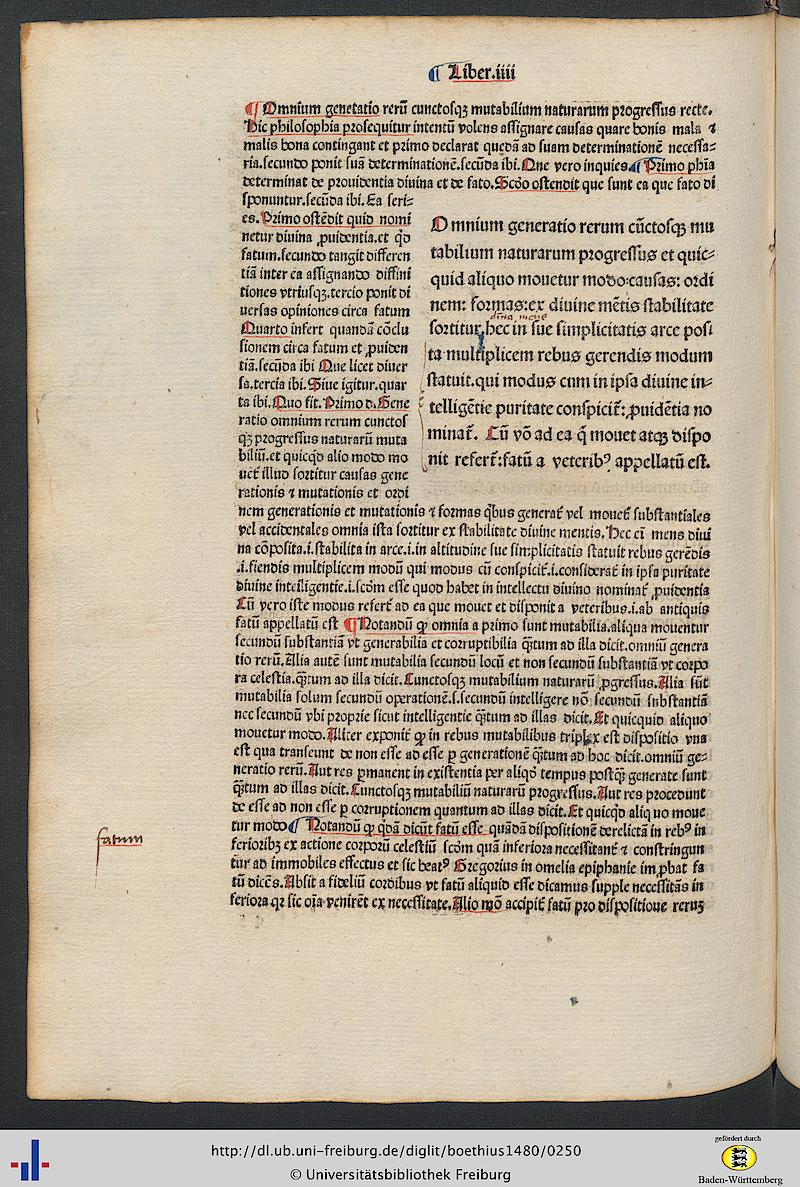 ¶ Liber.iiii
¶ Omnium generatio rerū cunctosqꝫ mutabilium naturarum progressus recte.
Hic philosophia prosequitur intentū volens assignare causas quare bonis mala ⁊
malis bona contingant et primo declarat quedā ad suam determinationē necessa⸗
ria.secundo ponit suā determinationē.secūda ibi. Que vero inquies. ¶ Primo phīa
determinat de prouidentia diuina et de fato. Scd̄o ostendit que sunt ea que fato di
sponuntur.secūda ibi. Ea seri⸗
es. Primo ostēdit quid nomi
netur diuina ꝓuidentia.et qd̄
fatum.secundo tangit differen
tiā inter ea assignando diffini
tiones vtriusqꝫ.tercio ponit di
uersas opiniones circa fatum
Quarto infert quandā cōclu
sionem circa fatum et ꝓuiden
tiā.secūda ibi Que licet diuer
sa.tercia ibi. Siue igitur.quar
ta ibi. Quo fit. Primo d. Gene
ratio omnium rerum cunctos
qꝫ progressus naturarū muta
biliū.et quicqd alio modo mo
uet᷑ illud sortitur causas gene
rationis ⁊ mutationis et ordi
Omnium generatio rerum cūctosqꝫ mu
tabilium naturarum progressus et quic⸗
quid aliquo mouetur modo:causas: ordi
nem: formas:ex diuine mētis stabilitate
diīna mens
sortitur.hec in sue simplicitatis arce posi
ta multiplicem rebus gerendis modum
statuit.qui modus cum in ipsa diuine in⸗
telligētie puritate conspicit᷑: ꝓuidētia no
minat᷑. Cū vō ad ea q̄ mouet atqꝫ dispo
nit refert᷑:fatū a veteribꝰ appellatū est.
nem generationis et mutationis ⁊ formas qͥbus generat᷑ vel mouet᷑ substantiales
vel accidentales omnia ista sortitur ex stabilitate diuine mentis. Hec em̄ mens diui
na cōposita.i.stabilita in arce.i.in altitudine sue simplicitatis statuit rebus gerēdis
.i.fiendis multiplicem modū qui modus cū conspicit᷑.i.considerat᷑ in ipsa puritate
diuine intelligentie.i.scd̄m esse quod habet in intellectu diuino nominat᷑ ꝓuidentia
Cū vero iste modus refert᷑ ad ea que mouet et disponit a veteribus.i.ab antiquis
fatū appellatū est ¶ Notandū ꝙ omnia a primo sunt mutabilia.aliqua mouentur
secundū substantiā vt generabilia et corruptibilia qͣtum ad illa dicit.omniū genera
tio rerū. Alia autē sunt mutabilia secundū locū et non secundū substantiā vt corpo
ra celestia.qͣtum ad illa dicit. Cunctosqꝫ mutabilium naturarū ꝓgressus. Alia sūt
mutabilia solum secundū operationē.s.secundū intelligere nō secundū substantiā
nec secundū vbi proprie sicut intelligentie qͣtum ad illas dicit. Et quicquid aliquo
mouetur modo. Aliter exponit᷑ ꝙ in rebus mutabilibus triplex est dispositio vna
est qua transeunt de non esse ad esse ꝑ generationē qͣtum ad hoc dicit.omniū ge⸗
neratio rerū. Aut res ꝑmanent in existentia per aliqd̄ tempus postqͣ generate sunt
qͣtum ad illas dicit. Cunctosqꝫ mutabiliū naturarū progressus. Aut res procedunt
de esse ad non esse ꝑ corruptionem quantum ad illas dicit. Et quicqd̄ aliquo moue
tur modo ¶ Notandū ꝙ qͥdā dicūt fatū esse quādā dispositionē derelictā in rebꝰ in
ferioribꝰ ex actione corporū celestiū scd̄m quā inferiora necessitant᷑ ⁊ constringun
tur ad immobiles effectus et sic beatꝰ Gregorius in omelia epiphanie imꝓbat fa
tū dicēs. Absit a fideliū cordibus vt fatū aliquid esse dicamus supple necessitās in
feriora qꝛ sic oīa venirēt ex necessitate. Alio mō accipit᷑ fatū pro dispositione rerum
fatum
http://dl.ub.uni-freiburg.de/diglit/boethius1480/0250
© Universitätsbibliothek Freiburg
gefördert durch
Baden-Württemberg